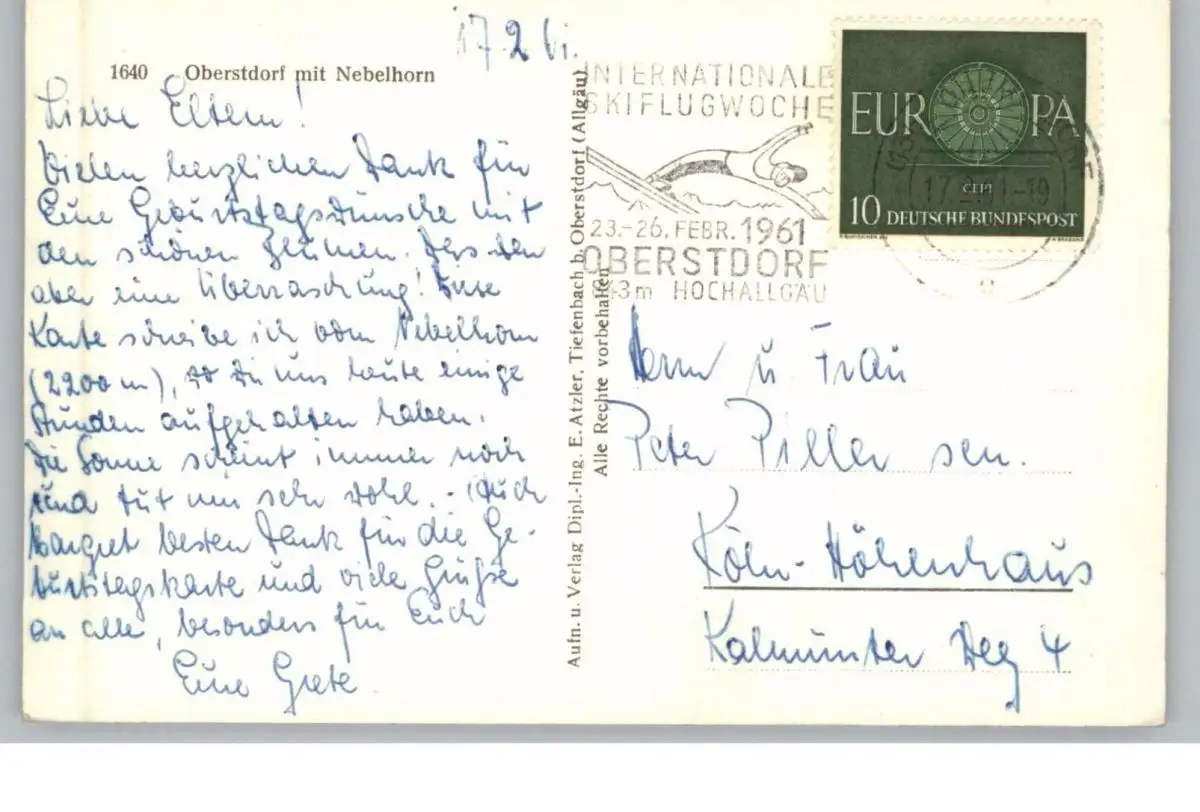 17.2.61.
1640 Oberstdorf mit Nebelhorn
Liebe Eltern!
Vielen herzlichen Dank für
Eure Geburtstagswünsche mit
den schönen Blumen. Das war
aber eine Überraschung! Diese
Karte schreibe ich vom Nebelhorn
(2200 m), wo wir uns heute einige
Stunden aufgehalten haben.
Die Sonne scheint immer noch
und tut uns sehr wohl. - Auch
Margret besten Dank für die Ge-
burtstagskarte und viele Grüße
an alle, besonders für Euch
Eure Grete.
Aufn. u. Verlag Dipl.-Ing. E. Atzler, Tiefenbach b. Oberstdorf (Allgäu)
Alle Rechte vorbehalten
INTERNATIONALE
SKIFLUGWOCHE
23.-26. FEBR. 1961
OBERSTDORF
843m HOCHALLGÄU
EUROPA
CEPT
10 DEUTSCHE BUNDESPOST
17.2.61-19
Herrn u. Frau
Peter Piller sen.
Köln-Höhenhaus
Kalmünter Weg 4